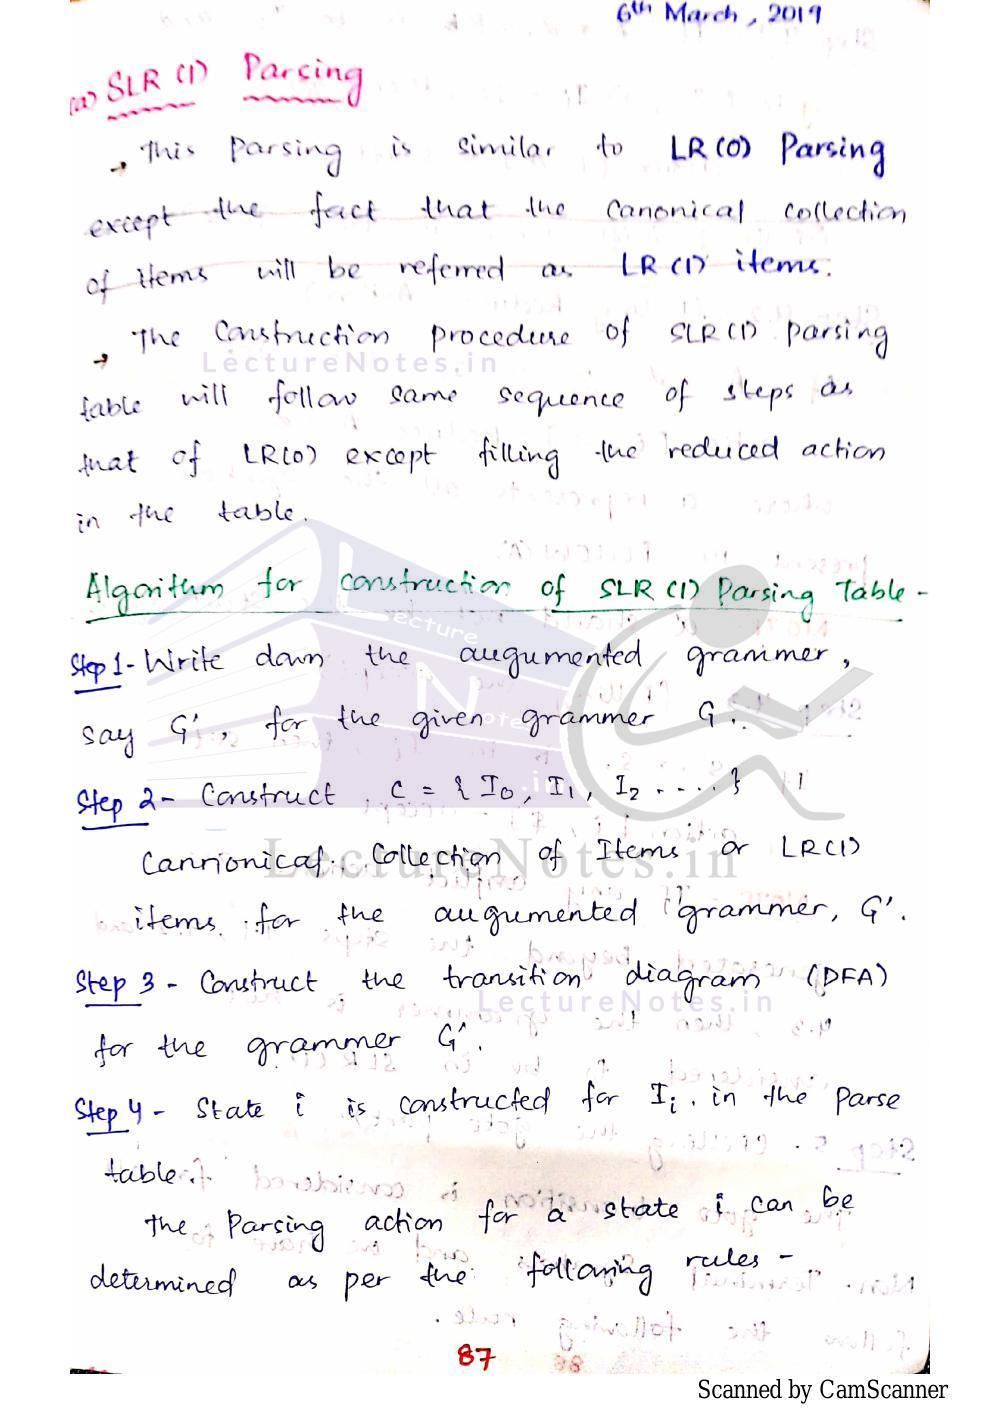 6th March, 2019
(a) SLR (1) Parsing
→ This Parsing is similar to LR(0) Parsing
except the fact that the canonical collection
of items will be referred as LR(1) items.
→ The Construction procedure of SLR(1) parsing
LectureNotes.in
table will follow same sequence of steps as
that of LR(0) except filling the reduced action
in the table.
Algorithm for construction of SLR(1) Parsing Table -
Lecture
Step 1- Write down the augumented grammer,
Notes
say G', for the given grammer G.
.in
Step 2- Construct C = { I0, I1, I2 .... }
LectureNotes.in
Cannonical Collection of Items or LR(1)
items for the augumented grammer, G'.
Step 3 - Construct the transition diagram (DFA)
LectureNotes.in
for the grammer G'.
Step 4 - State i is constructed for Ii in the parse
table.
The Parsing action for a state i can be
determined as per the following rules -
87
Scanned by CamScanner